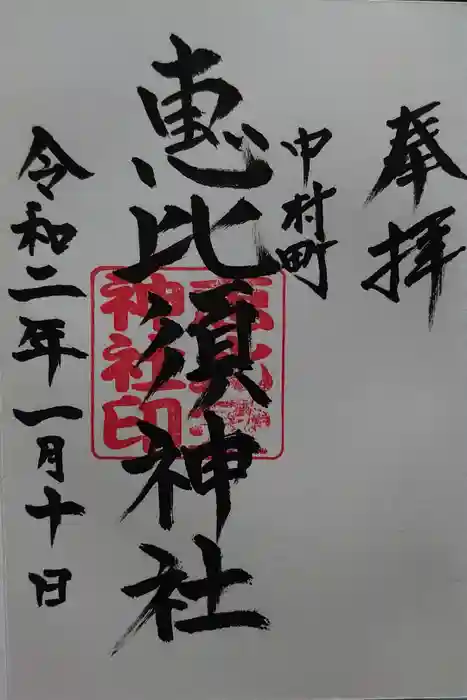 奉拝
中村町
恵比須神社
令和二年一月十日
恵比須
神社印